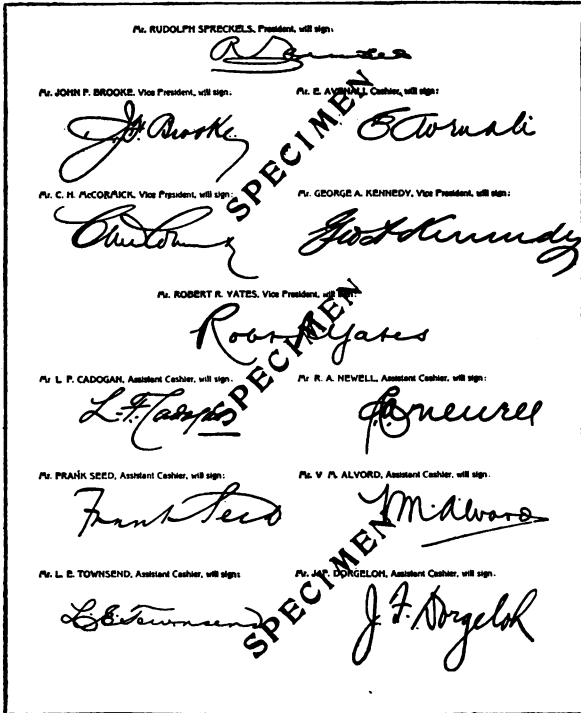 Mr. RUDOLPH SPRECKELS, President, will sign:
Mr. JOHN P. BROOKE, Vice President, will sign:
J.P. Brooke
Mr. E. AVENALI Cashier, will sign:
E Avenali
SPECIMEN
Mr. C. H. McCORMICK, Vice President, will sign:
Mr. GEORGE A. KENNEDY, Vice President, will sign:
Geo A Kennedy
Mr. ROBERT R. YATES, Vice President, will sign:
Robt R Yates
SPECIMEN
Mr L. F. CADOGAN, Assistant Cashier, will sign.
L.F. Cadogan
Mr. R. A. NEWELL, Assistant Cashier, will sign:
RA Newell
Mr. FRANK SEED, Assistant Cashier, will sign:
Frank Seed
Mr. V M. ALVORD, Assistant Cashier, will sign.
V M. Alvord
SPECIMEN
Mr. L. E. TOWNSEND, Assistant Cashier, will sign:
L.E. Townsend
DORGELOH, Assistant Cashier, will sign.
J. F. Dorgeloh